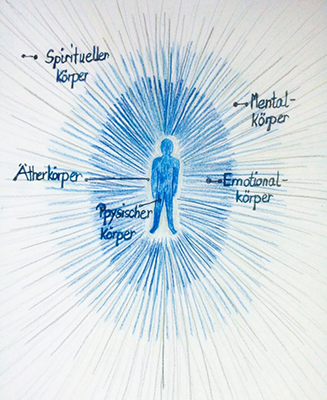 Spiritueller
Körper
Mental-
körper
Ätherkörper
Emotional-
körper
Ppysischer
Körper